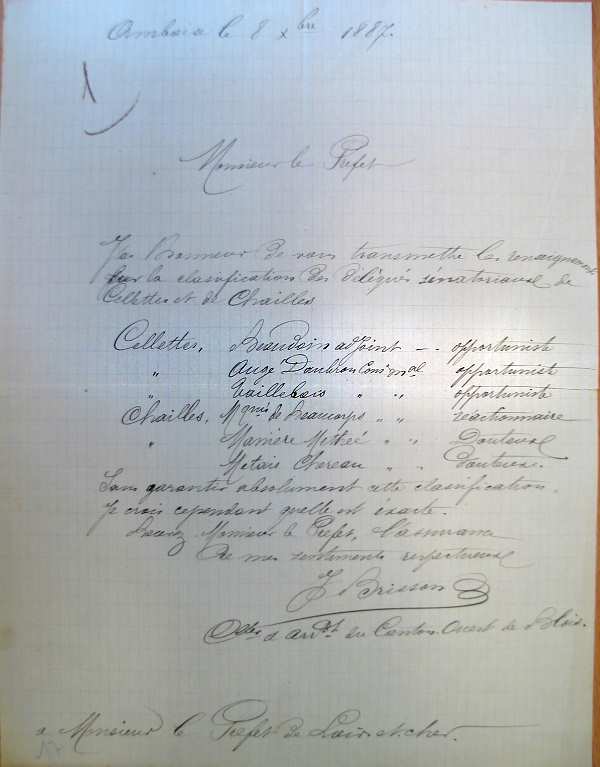 Amboise le 8 xbre 1887.
Monsieur le Préfet
J'ai l'honneur de vous transmettre les renseignements
sur la classification des délégués sénatoriaux de
Cellettes et de Chailles
Cellettes, Beaudoin adjoint - - opportuniste
" Augé Daubron Cons. mal opportuniste
" Taillebois " " opportuniste
Chailles, Mquis de Beaucorps " " réactionnaire
" Marnière Methée " " Douteux
Metais Chereau " " douteux.
Sans garantir absolument cette classification,
je crois cependant qu'elle est éxacte.
Monsieur le Préfet, l'assurance
de mes sentiments respectueux
J Brisson
d'arrdt du Canton Ouest de Blois.
a Monsieur le Préfet de Loir et cher.